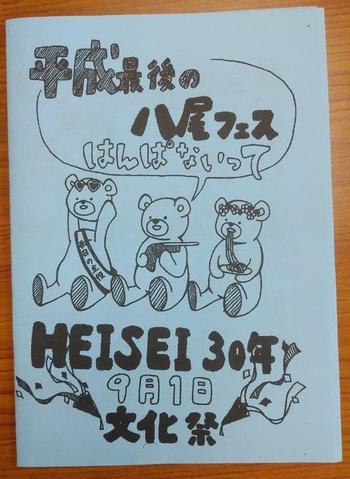 平成最後の
八尾フェス
はんぱないって
本日の主役
HEISEI 30年
9月1日
文化祭